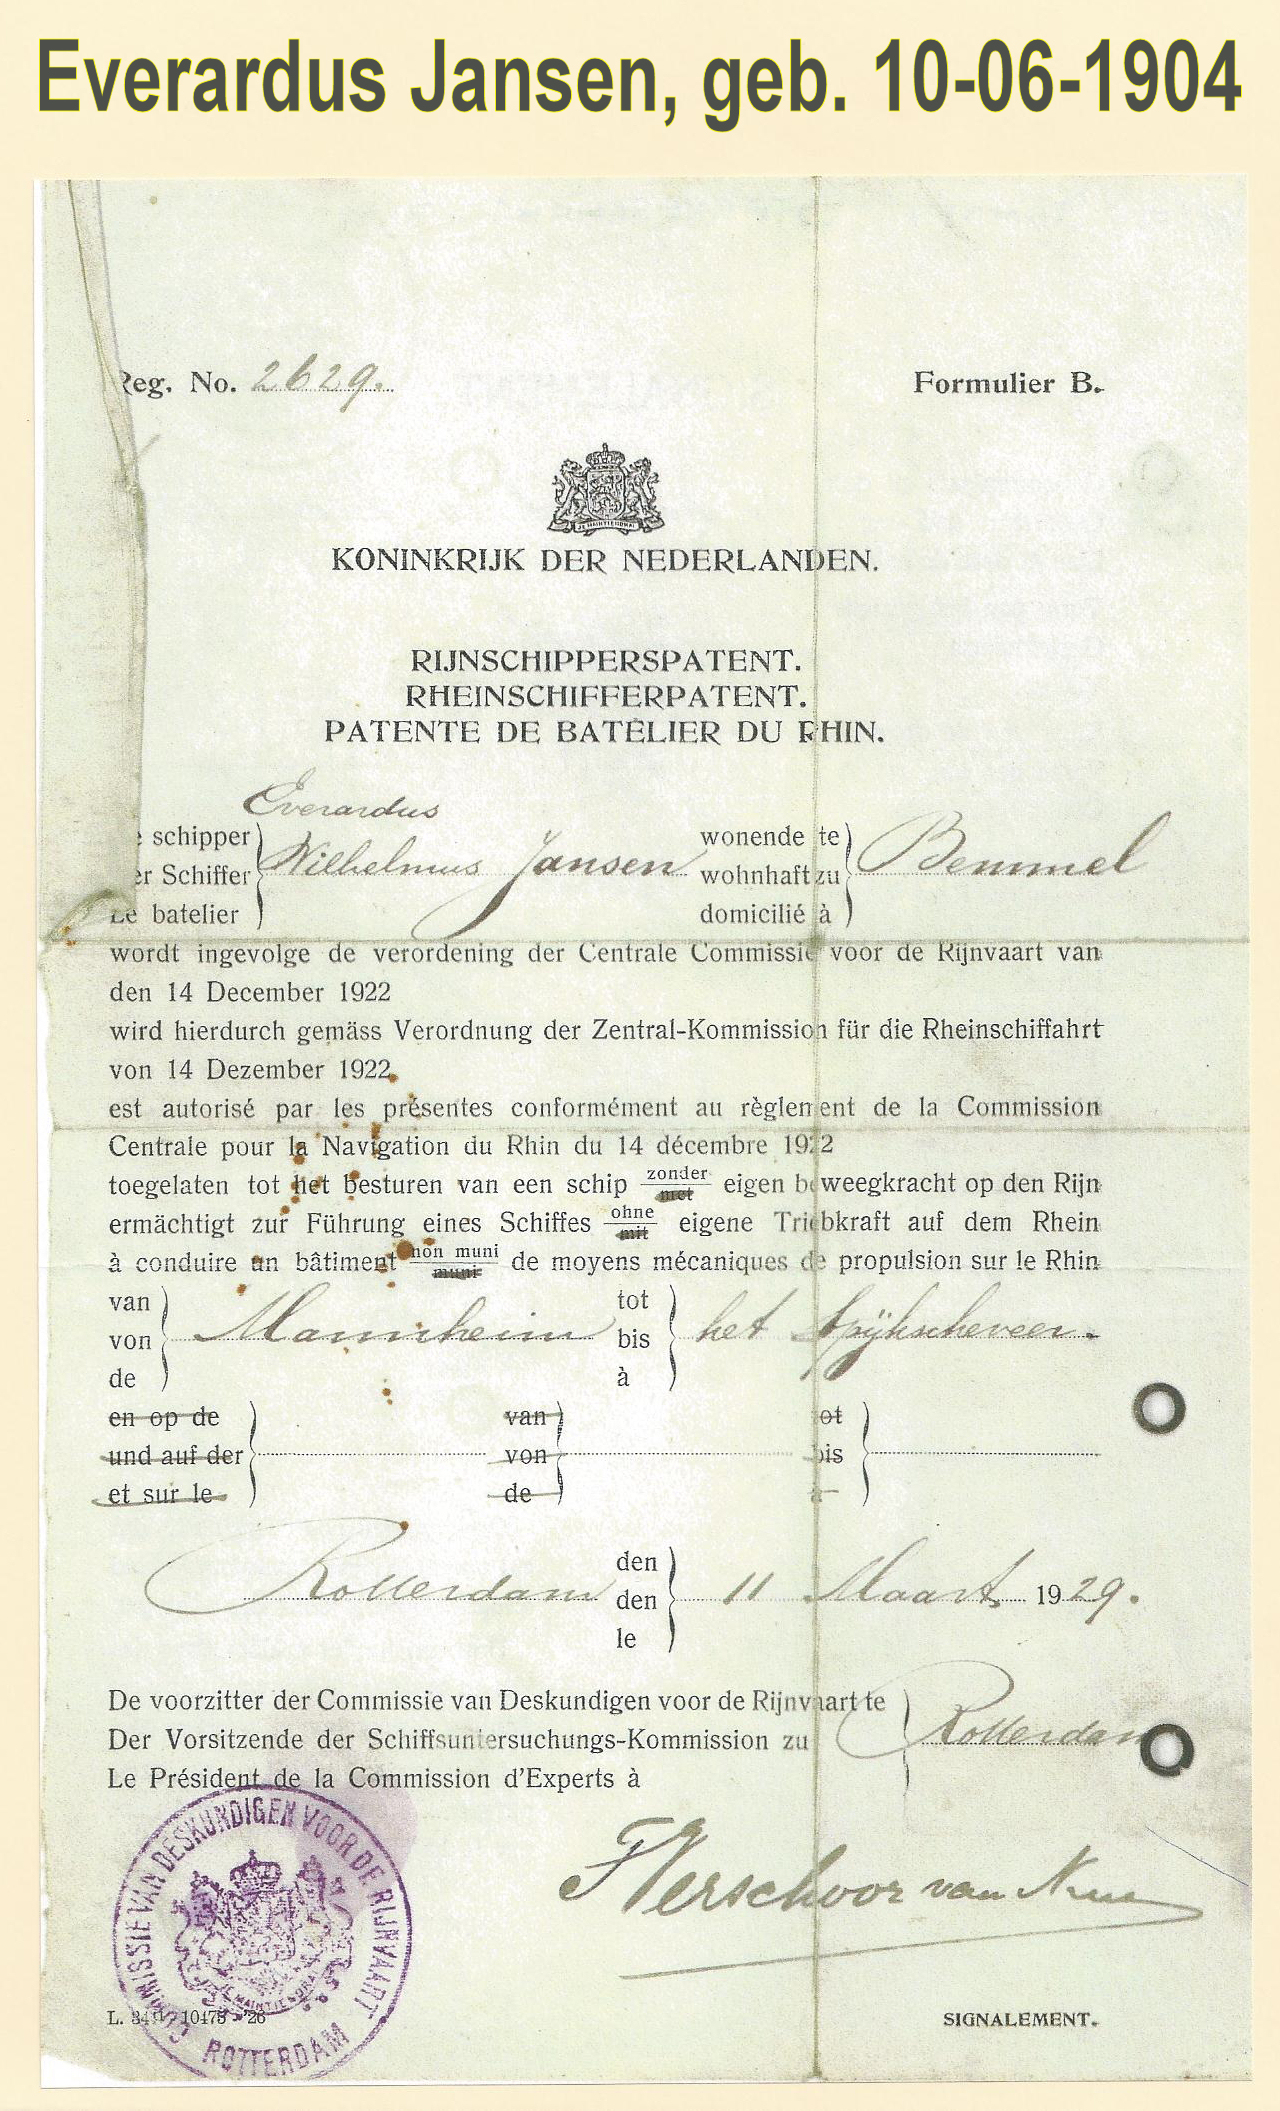 Everardus Jansen, geb. 10-06-1904
Reg. No. 2629.
Formulier B.
JE MAINTIENDRAI
KONINKRIJK DER NEDERLANDEN.
RIJNSCHIPPERSPATENT.
RHEINSCHIFFERPATENT.
PATENTE DE BATELIER DU RHIN.
Everardus
schipper wonende te
er Schiffer Wilhelmus Jansen wohnhaft zu Bemmel
Le batelier domicilié à
wordt ingevolge de verordening der Centrale Commissie voor de Rijnvaart van
den 14 December 1922
wird hierdurch gemäss Verordnung der Zentral-Kommission für die Rheinschiffahrt
von 14 Dezember 1922
est autorisé par les présentes conformément au règlement de la Commission
Centrale pour la Navigation du Rhin du 14 décembre 1922
toegelaten tot het besturen van een schip zonder met eigen beweegkracht op den Rijn
ermächtigt zur Führung eines Schiffes ohne mit eigene Triebkraft auf dem Rhein
à conduire un bâtiment non muni muni de moyens mécaniques de propulsion sur le Rhin
van tot
von Mannheim bis het Spijksche veer.
de à
en op de van tot
und auf der von bis
et sur le de à
den
Rotterdam den 11 Maart 1929.
le
De voorzitter der Commissie van Deskundigen voor de Rijnvaart te
Der Vorsitzende der Schiffsuntersuchungs-Kommission zu Rotterdam
Le Président de la Commission d'Experts à
COMMISSIE VAN DESKUNDIGEN VOOR DE RIJNVAART
JE MAINTIENDRAI
ROTTERDAM
Verschoor van
L. 10475 - '26
SIGNALEMENT.